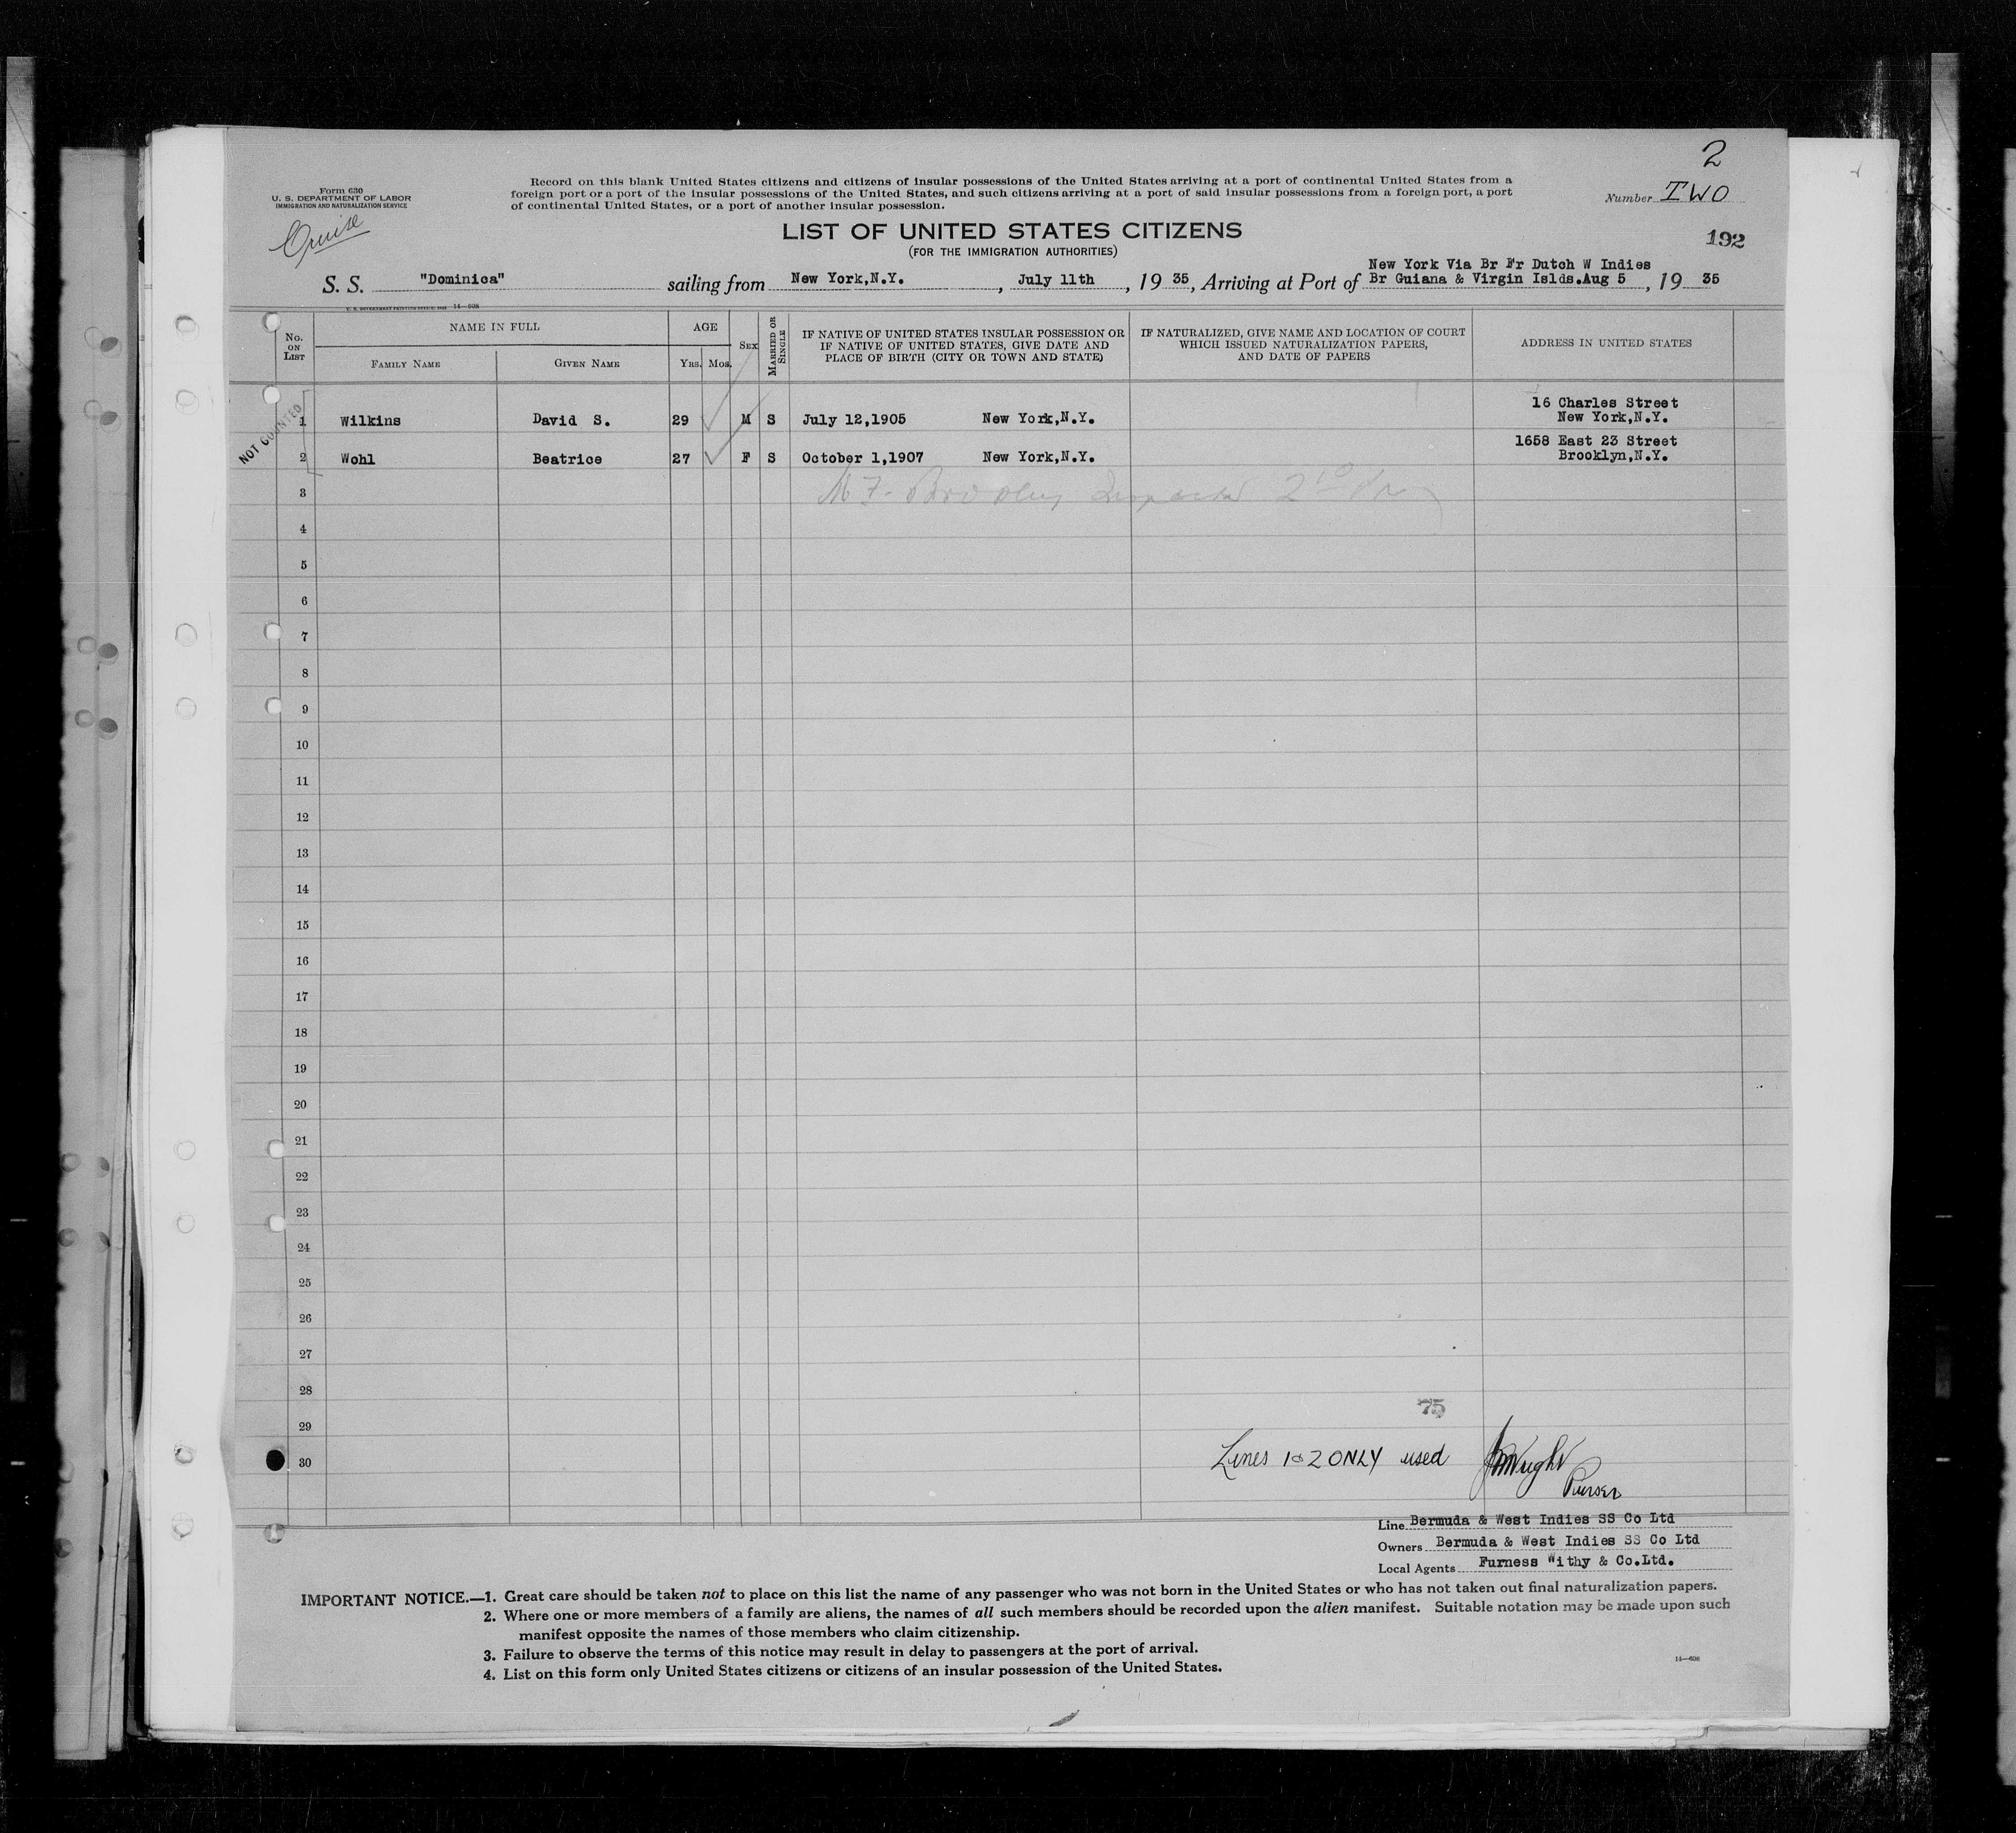 2
Form 630
U. S. DEPARTMENT OF LABOR
IMMIGRATION AND NATURALIZATION SERVICE
Cruise
Record on this blank United States citizens and citizens of insular possessions of the United States arriving at a port of continental United States from a
foreign port or a port of the insular possessions of the United States, and such citizens arriving at a port of said insular possessions from a foreign port, a port
of continental United States, or a port of another insular possession.
Number TWO
LIST OF UNITED STATES CITIZENS
(FOR THE IMMIGRATION AUTHORITIES)
192
S. S. "Dominica" sailing from New York,N.Y. , July 11th , 19 35, Arriving at Port of New York Via Br Fr Dutch W Indies
Br Guiana & Virgin Islds.Aug 5 , 19 35
U. S. GOVERNMENT PRINTING OFFICE 14—608
No. ON LIST
NAME IN FULL
FAMILY NAME
GIVEN NAME
AGE
YRS. MOS.
SEX
MARRIED OR SINGLE
IF NATIVE OF UNITED STATES INSULAR POSSESSION OR
IF NATIVE OF UNITED STATES, GIVE DATE AND
PLACE OF BIRTH (CITY OR TOWN AND STATE)
IF NATURALIZED, GIVE NAME AND LOCATION OF COURT
WHICH ISSUED NATURALIZATION PAPERS,
AND DATE OF PAPERS
ADDRESS IN UNITED STATES
NOT COUNTED
16 Charles Street
1 Wilkins David S. 29 M S July 12,1905 New York,N.Y. New York,N.Y.
1658 East 23 Street
2 Wohl Beatrice 27 F S October 1,1907 New York,N.Y. Brooklyn,N.Y.
3
4
5
6
7
8
9
10
11
12
13
14
15
16
17
18
19
20
21
22
23
24
25
26
27
28
75
29
30 Lines 1&2 ONLY used
Purser
Line Bermuda & West Indies SS Co Ltd
Owners Bermuda & West Indies SS Co Ltd
Local Agents Furness Withy & Co.Ltd.
IMPORTANT NOTICE.—1. Great care should be taken not to place on this list the name of any passenger who was not born in the United States or who has not taken out final naturalization papers.
2. Where one or more members of a family are aliens, the names of all such members should be recorded upon the alien manifest. Suitable notation may be made upon such
manifest opposite the names of those members who claim citizenship.
3. Failure to observe the terms of this notice may result in delay to passengers at the port of arrival.
4. List on this form only United States citizens or citizens of an insular possession of the United States.
14—608